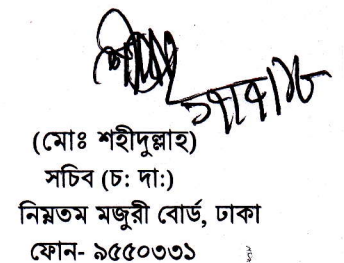 (মোঃ শহীদুল্লাহ)
সচিব (চ: দা:)
নিম্নতম মজুরী বোর্ড, ঢাকা
ফোন- ৯৫৫০৩৩১